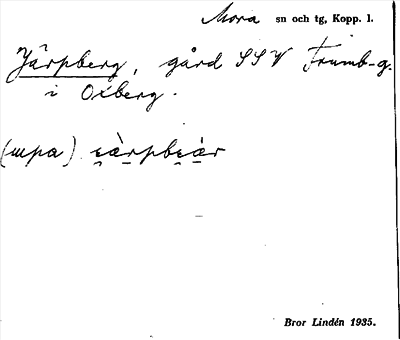 Mora sn och tg, Kopp. l.
Järpberg, gård SSV Trumb-g.
i Oxberg.
(mpa) ε̯àrpbε̯àr
Bror Lindén 1935.